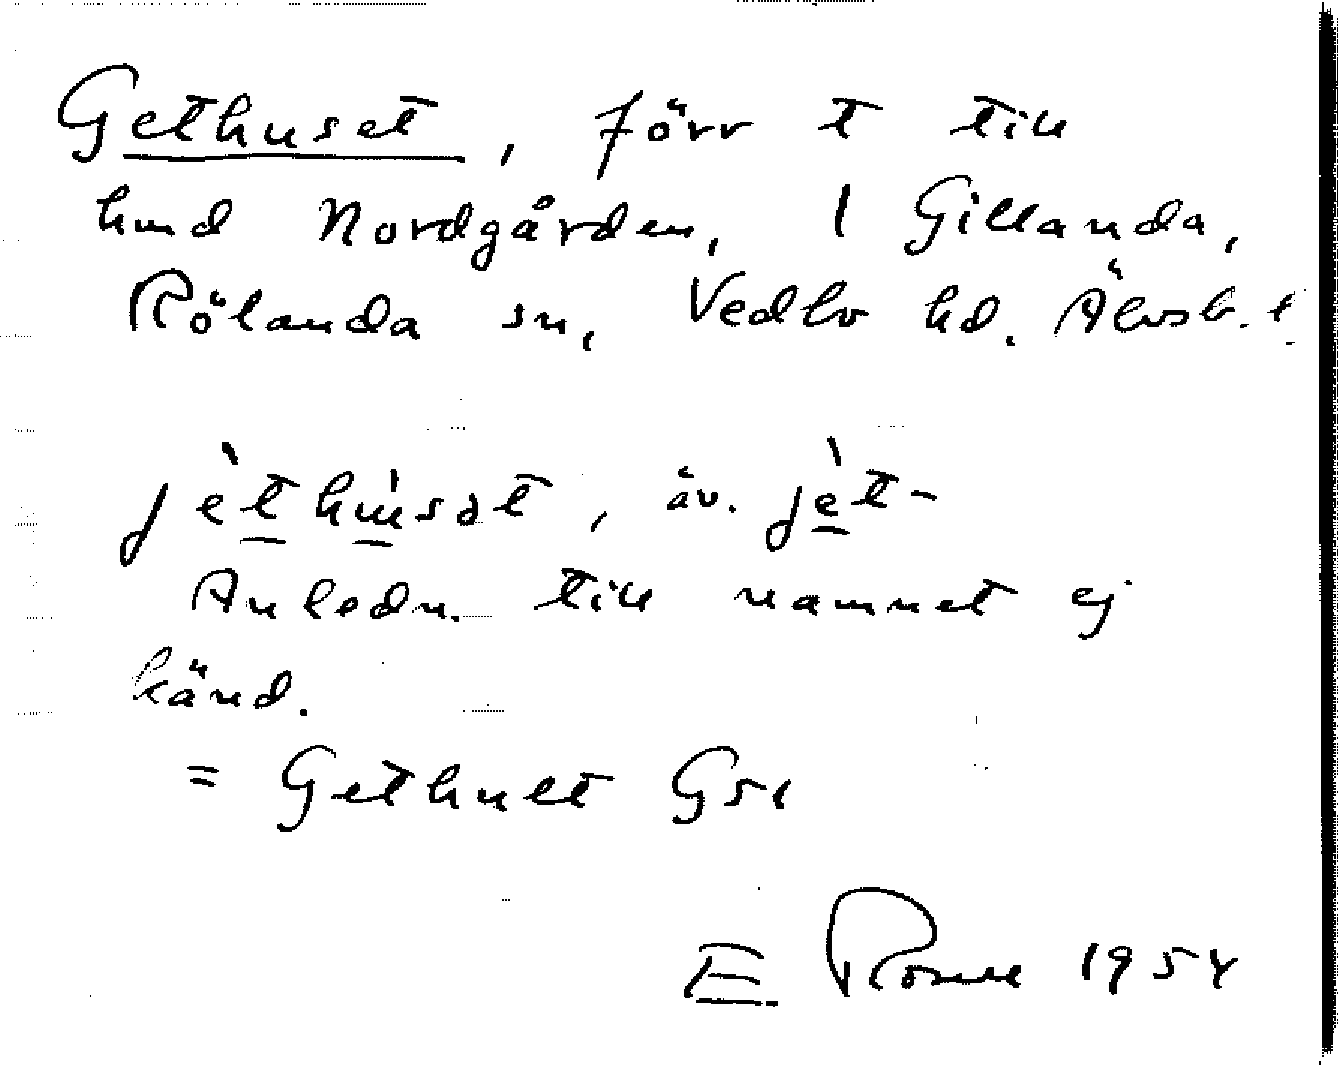 Gethuset, förr t till
hmd Nordgården, 1 Gillanda,
Rölanda sn, Vedbo hd. Älvsb. l
jèthúsət, äv. jèt-
Anledn. till namnet ej
känd.
= Gethuet Gsk
E. 1954